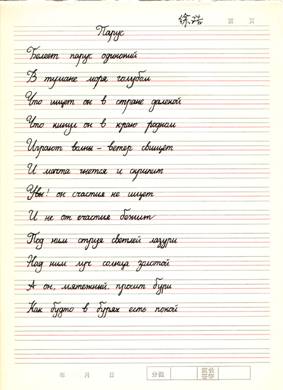 Парус
Белеет парус одинокий
В тумане моря голубом
Что ищет он в стране далекой
Что кинул он в краю родном
Играют волны – ветер свищет
И мачта гнется и скрипит
Увы! он счастия не ищет
И не от счастия бежит
Под ним струя светлей лазури
Над ним луч солнца золотой
А он, мятежний, просит бури
Как будто в бурях есть покой
年 月 日 分数